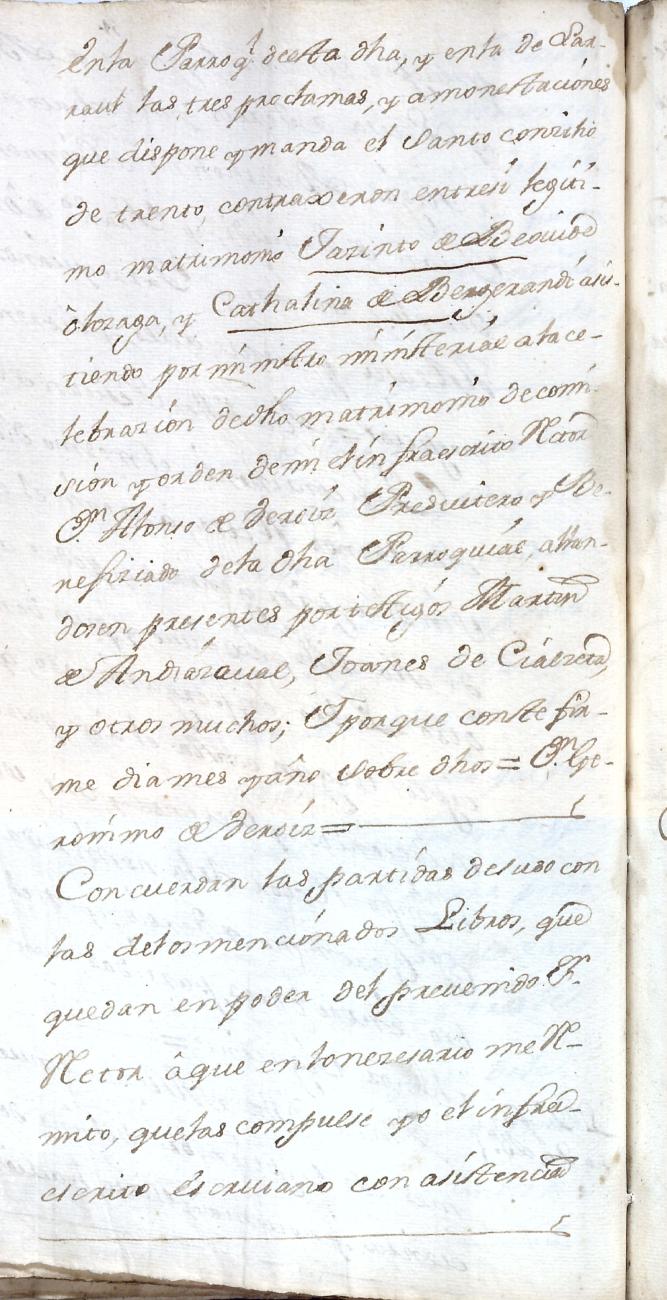 En la Parroql. de esta dha, y en la de Lar-
raul las tres proclamas, y amonestaciónes
que dispone y manda el Santo conzilio
de trento, contraxeron entresi legiti-
mo matrimonio Jazinto de Beguide
ôlozaga, y Cathalina de Bergerandi asis-
tiendo por ministro ministeriâl a la ce-
lebrazión de dho matrimonio de comi-
sión y orden de mi el infraescrito Rector
Dn. Alonso de Beroiz Presvitero y Be-
nefiziado de la dha Parroquiâl, allan-
dosen presentes por testigos Martin
de Andiazaual, Joanes de
y otros muchos; Y porque conste fir-
me dia mes y año sobre dhos = Dn. Ge-
ronimo de Beroiz =
Concuerdan las partidas desuso con
las delos mencionados Libros, que
quedan en poder del prevenido Sr.
Rector â que en lo nezesario me Re-
mito, que las compulse yo el infra-
escrito escriuano con asistencia